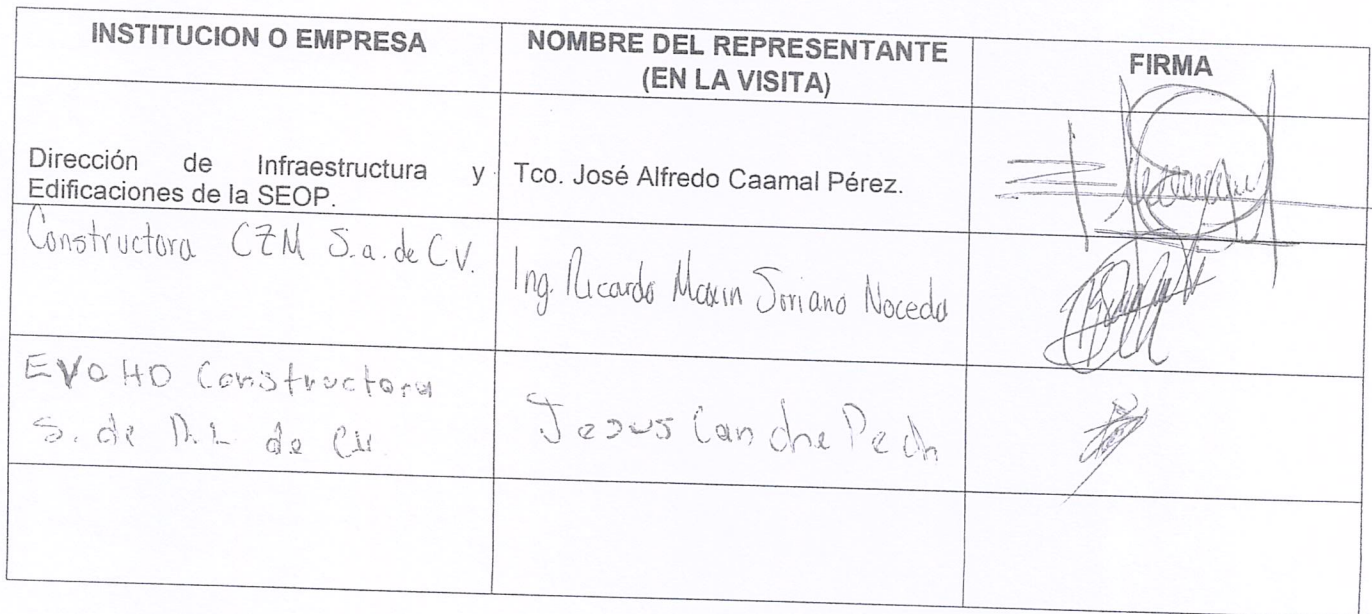 INSTITUCION O EMPRESA
NOMBRE DEL REPRESENTANTE
(EN LA VISITA)
FIRMA
Dirección de Infraestructura y
Edificaciones de la SEOP.
Tco. José Alfredo Caamal Pérez.
Constructora CZM S.a. de C.V.
Ing. Ricardo Maxin Soriano Noceda
EVOHD Constructora
S. de R.L de CV
Jesus Canche Pech